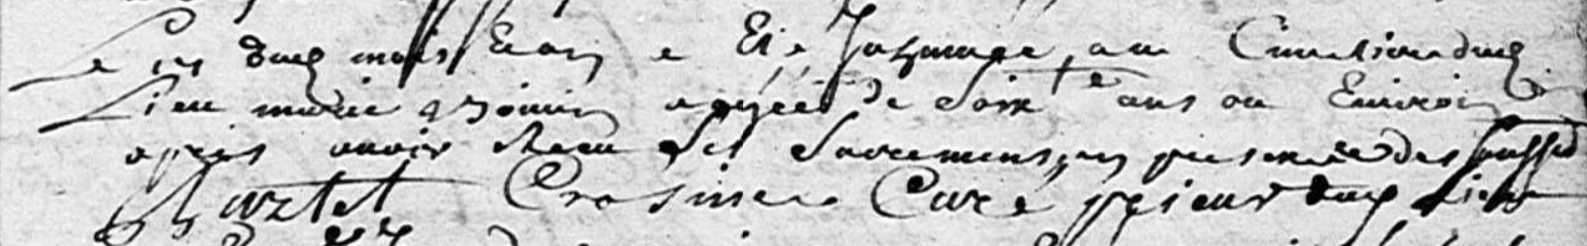 Les dud mois et an a Eté Inhumée au Cimetiere dud
Lieu marie agée de soix.te ans ou Environ
apres avoir Receu Les Sacremens, en presence des soussd
Curé prieur dud Lieu